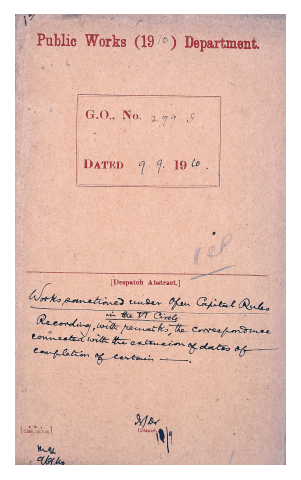 Public Works (1910) Department.
G.O., No. 299 I
DATED 9 9. 1910.
[Despatch Abstract.]
Works sanctioned under Open Capital Rules
in the VI Circle
Recording, with remarks, the correspondence
connected with the extension of dates of
completion of certain —.
Issued
10/9